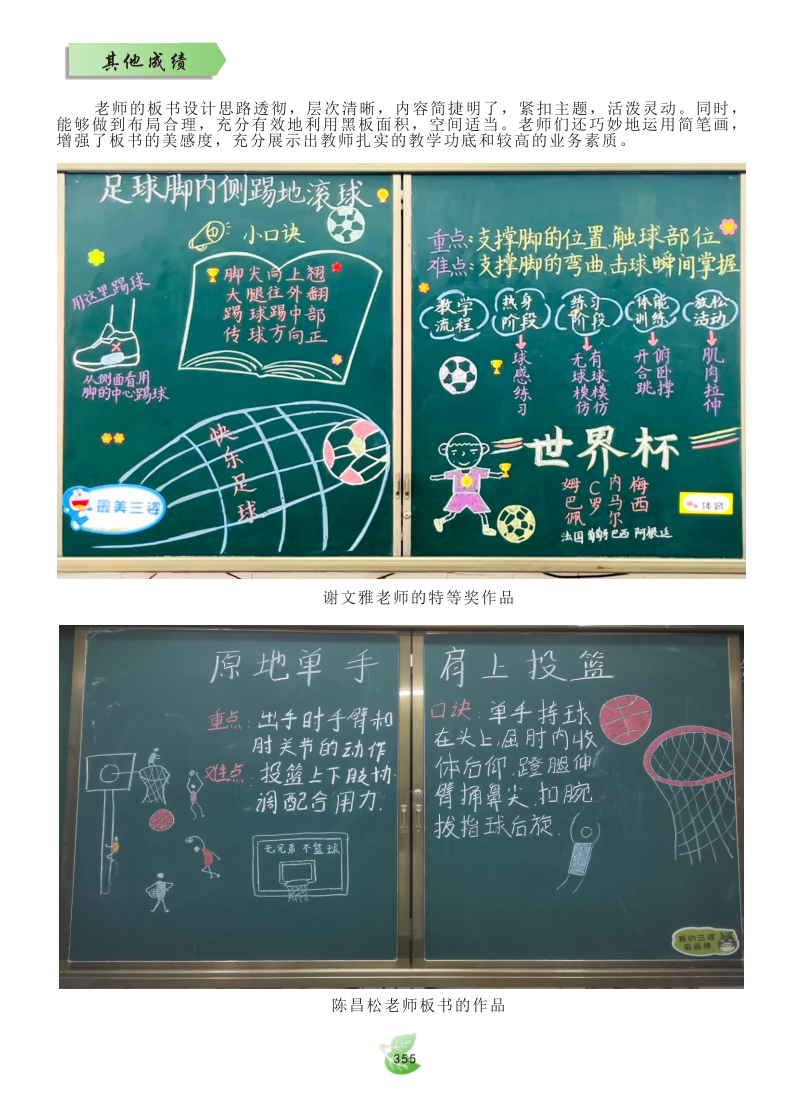 其他成绩
老师的板书设计思路透彻，层次清晰，内容简捷明了，紧扣主题，活泼灵动。同时，
能够做到布局合理，充分有效地利用黑板面积，空间适当。老师们还巧妙地运用简笔画，
增强了板书的美感度，充分展示出教师扎实的教学功底和较高的业务素质。
足球脚内侧踢地滚球
小口诀
脚尖向上翘
大腿往外翻
踢球踢中部
传球方向正
用这里踢球
从侧面看用
脚的中心踢球
快乐足球
最美三连
重点:支撑脚的位置、触球部位
难点:支撑脚的弯曲、击球瞬间掌握
教学流程
热身阶段
练习阶段
体能训练
放松活动
球感练习
有球模仿
无球模仿
俯卧撑
开合跳
肌肉拉伸
世界杯
姆 C 内 梅
巴 罗 马 西
佩 尔
法国 葡萄牙 巴西 阿根廷
体育
谢文雅老师的特等奖作品
原地单手肩上投篮
重点:出手时手臂和
肘关节的动作
难点.投篮上下肢协
调配合用力.
无兄弟 不篮球
口诀:单手持球
在头上,屈肘内收
体后仰.蹬腿伸
臂捅鼻尖.扣腕
拔指球后旋.
我的三连
圆圆棒
陈昌松老师板书的作品
355